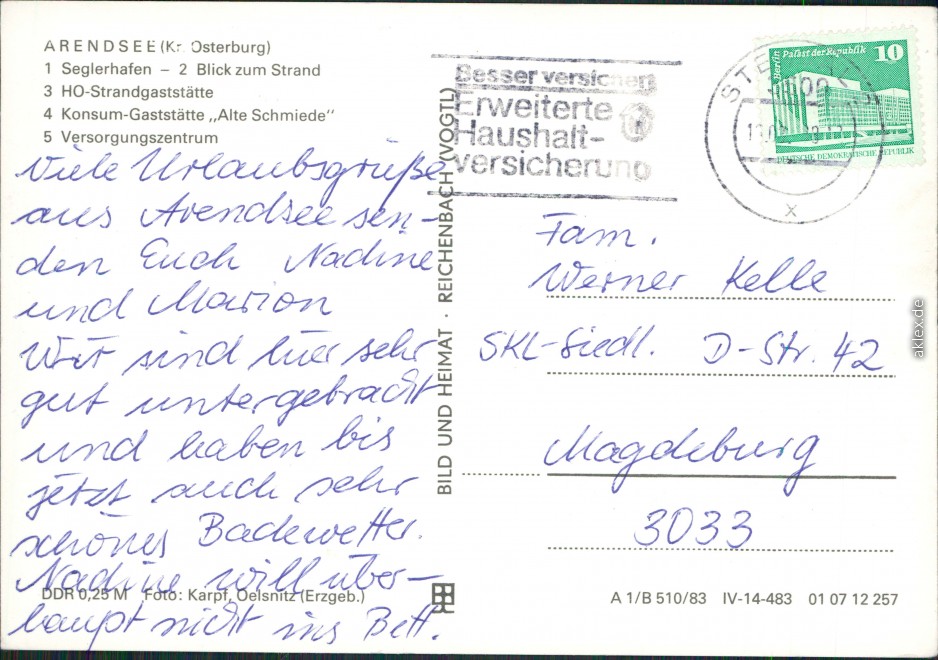 ARENDSEE (Kr. Osterburg)
1 Seglerhafen – 2 Blick zum Strand
3 HO-Strandgaststätte
4 Konsum-Gaststätte „Alte Schmiede“
5 Versorgungszentrum
Viele Urlaubsgrüße
aus Arendsee sen-
den Euch Nadine
und Marion
Wir sind hier sehr
gut untergebracht
und haben bis
jetzt auch sehr
schönes Badewetter.
Nadine will über-
haupt nicht ins Bett.
DDR 0,25 M Foto: Karpf, Oelsnitz (Erzgeb.)
BILD UND HEIMAT · REICHENBACH (VOGTL)
Besser versichert
Erweiterte
Haushalt-
versicherung
x
Berlin Palast der Republik 10
DEUTSCHE DEMOKRATISCHE REPUBLIK
Fam.
Werner Kelle
SKL-Siedl. D-Str. 42
Magdeburg
3033
A 1/B 510/83 IV-14-483 01 07 12 257
aklex.de